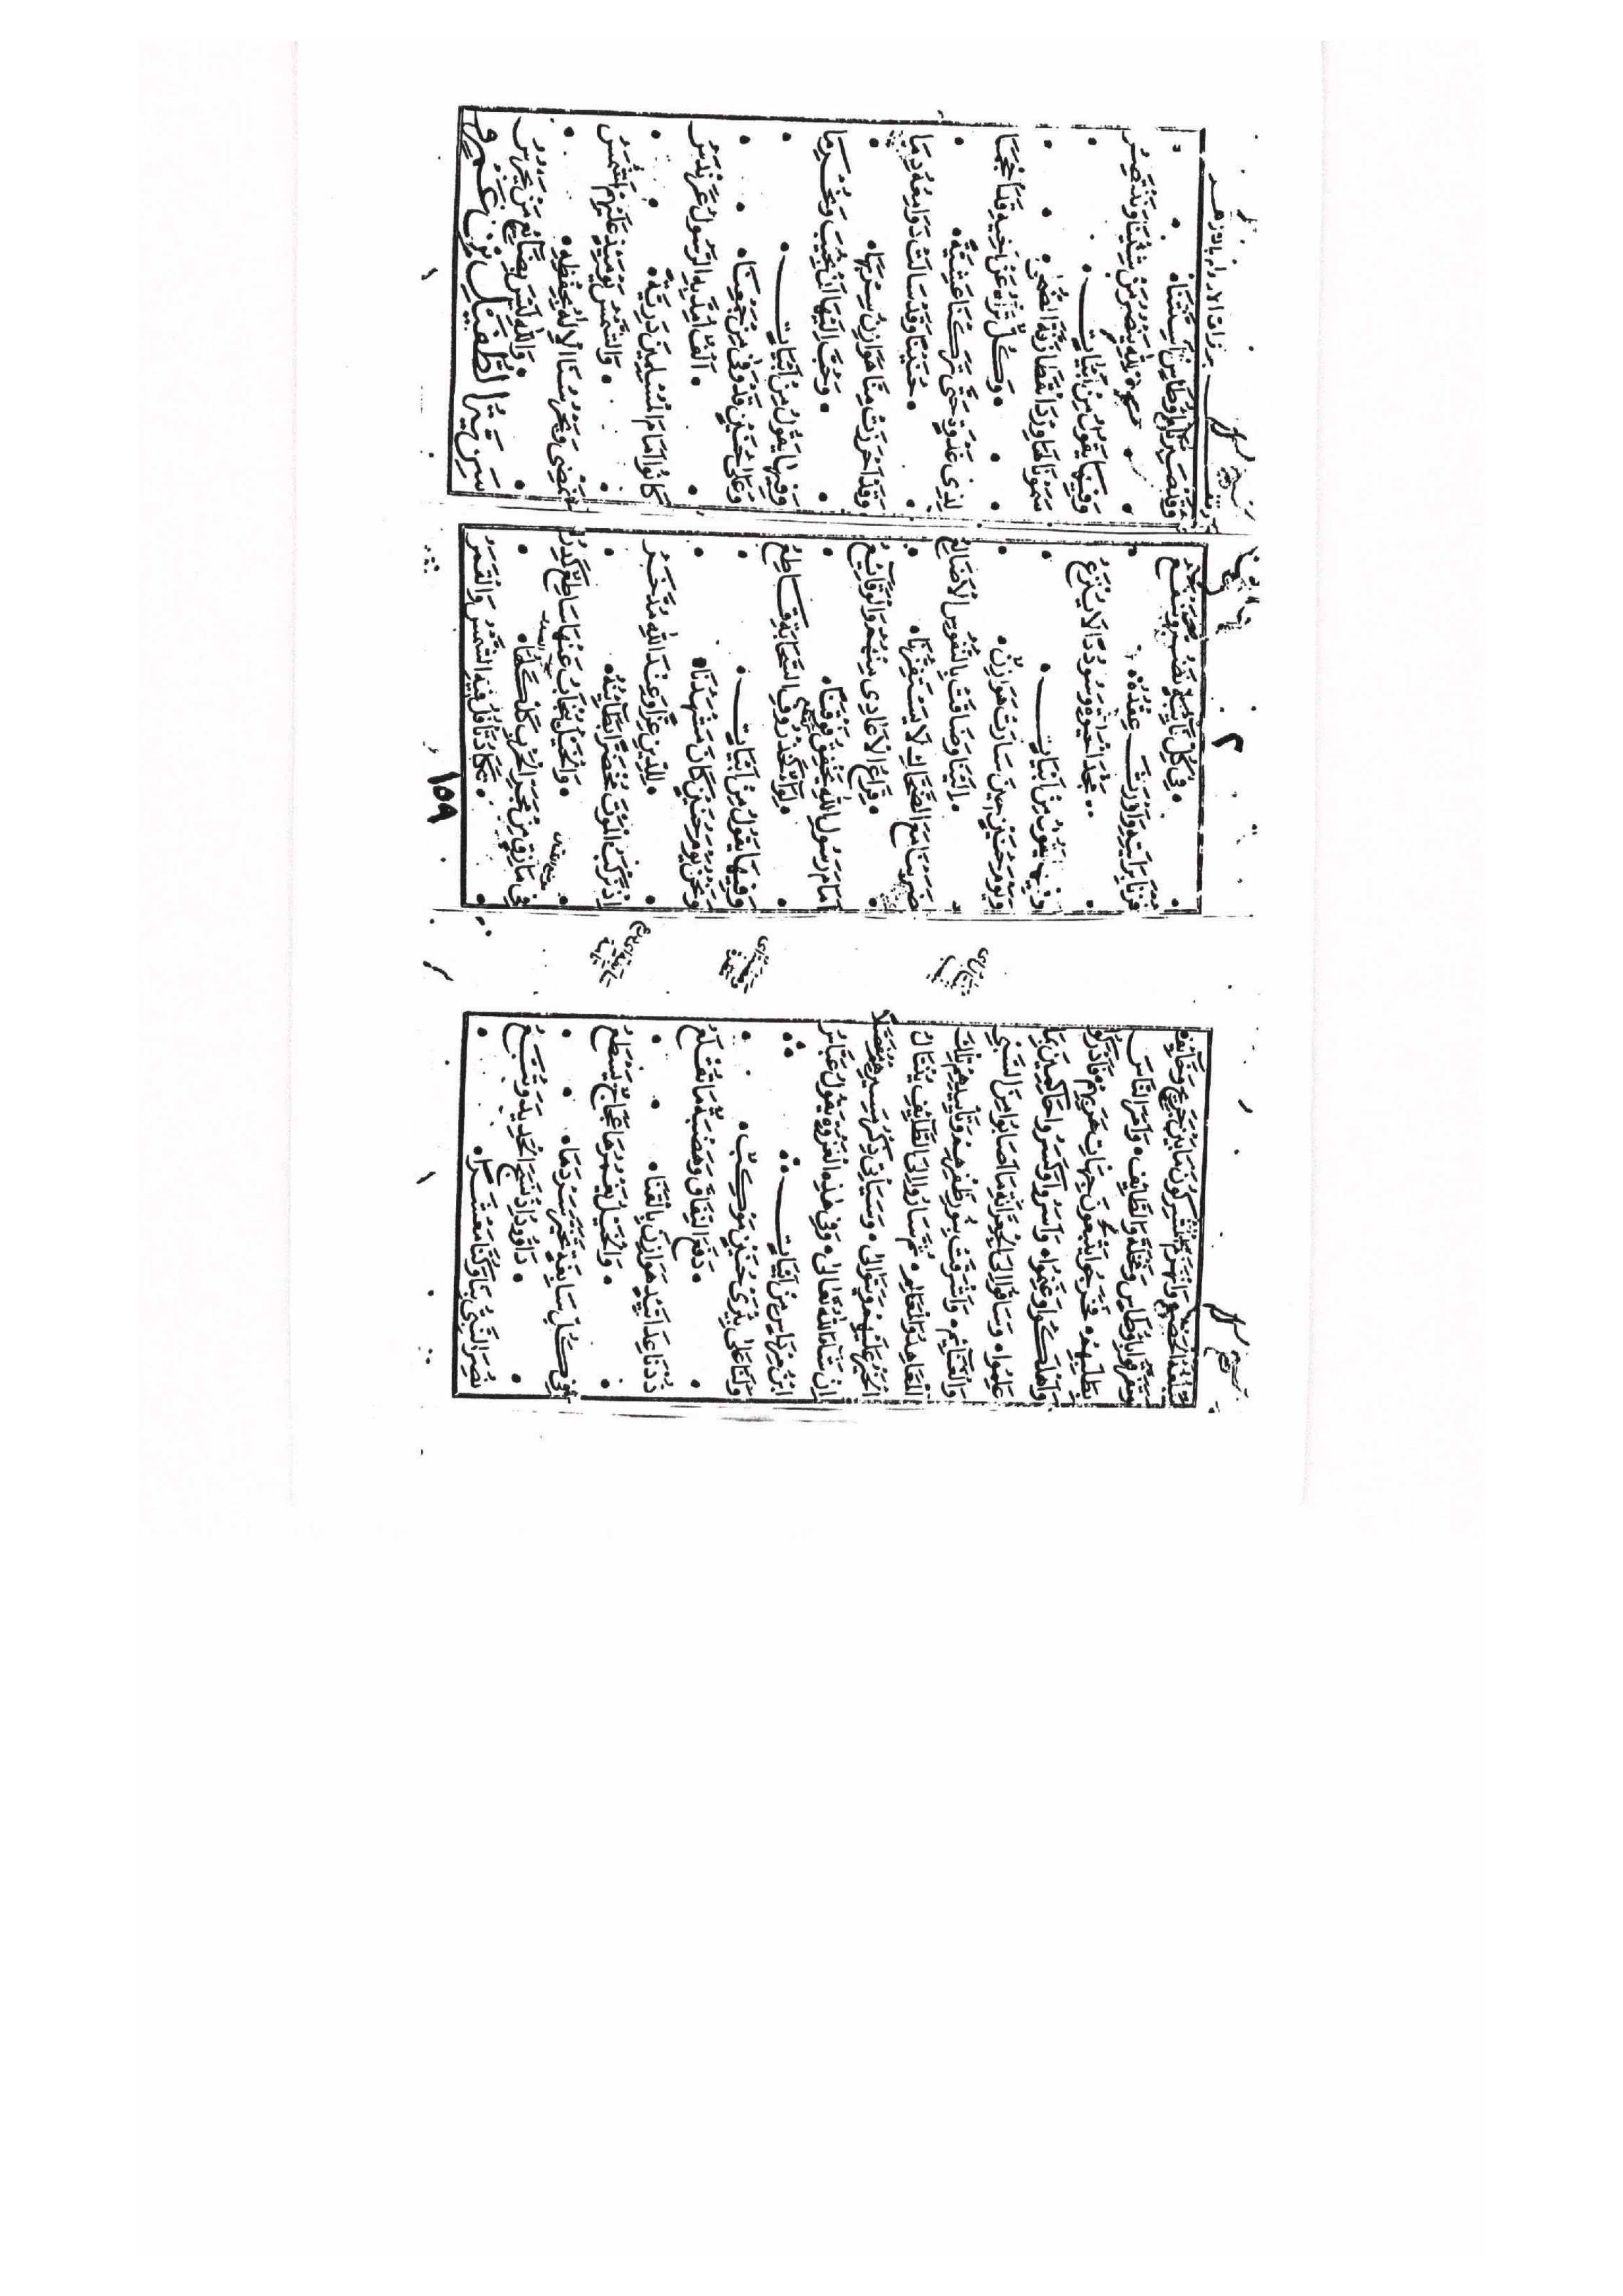 الحضون وانهزم المشركون ما بين جريح وخائف
باوطاس ونخلة والطائف، وامر الناس
بطلبهم، فخرجوا يتبعون جهات هربهم، فادركوا
واهلكوا وغنموا، واسروا وكسروا حاكمين بما
علموا، وساقوا الى الجعرانة ما اصابوا من السبي
والغنائم، واشرقت بنور ظفرهم وتأييدهم تلك
المعاهد والمعالم، ثم ساروا الى الطائف
الخبر عليهم ويتوالى، وسيأتي ذكر سيرهم مفصلا
ان شاء الله تعالى، وفي هذه الغزوة يقول عباس
ابن مرداس من ابيات
ولنا على بئرى حنين موكب
دفع النفاق وهضبة ما تقلع
ذدنا غداتئذ هوازن بالقنا
والخيل يغمرها عجاج يسطع
في كل سابغة تخير سردها
داود اذ نسج الحديد وتبع
نصر النبي بنا وكنا معشرا
في كل نائبة نضر وننفع
فزنا برايته واورث عقده
مجد الحيوة وسوددا لا ينزع
وفيها يقول من ابيات
ويوم حنين حين سارت هوازن
الينا وضاقت بالنفوس الاضالع
صبرنا مع الضحاك لا يستفزنا
قراع الاعادي منهم والوقائع
امام رسول الله يخفق فوقنا
لواء كخذروف السحابة
وفيها يقول من ابيات
ونحن يوم حنين كان مشهدنا
للدين عزا وعند الله مدخر
اذ نركب الموت مخضرا بطائنه
والخيل ينجاب عنها ساطع كدر
في مأزق من مجر الحرب كلكلها
تكاد تأفل فيه الشمس والقمر
١٥٩
وقد صبرنا باوطاس اسنتنا
لله ننصر من شئنا وننتصر
وفيها يقول من ابيات
سمونا لها ورد القطا زفه الضحى
وكل تراه عن اخيه قد احجما
لدى غدوة حتى تركنا عشية
حنينا وقد سالت دوامعه دما
وقد احرزت منا هوازن سربها
وحب اليها ان نخيب ونحرما
وفيها يقول من ابيات
وعلى حنين قد وفى من جمعنا
الف امد به الرسول عرندس
كانوا امام المسلمين دريئة
والشمس يومئذ عليهم اشمس
نمضي ويحرسنا الاله بحفظه
والله ليس بضائع من يحرس
سرية الطفيل بن عمرو